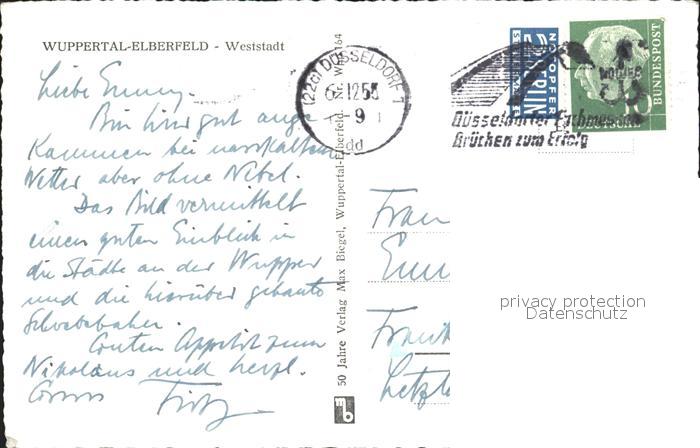 WUPPERTAL-ELBERFELD - Weststadt
Liebe Emmy.
Bin hier gut ange
kommen bei nasskaltem
Wetter aber ohne Nebel.
Das Bild vermittelt
einen guten Einblick in
die Städte an der Wupper
und die hierüber gebaute
Schwebebahn.
Guten Appetit zum
Nikolaus und herzl.
Gruss Fritz
50 Jahre Verlag Max Biegel, Wuppertal-Elberfeld.
mb
(22c) DÜSSELDORF 1
6.12.55
9
dd
NOTOPFER
BERLIN
STEUERMARKE
Düsseldorfer Fachmessen
Brücken zum Erfolg
NOWEA
DEUTSCHE
BUNDESPOST
10
Frau
Frank
Letzte
privacy protection
Datenschutz